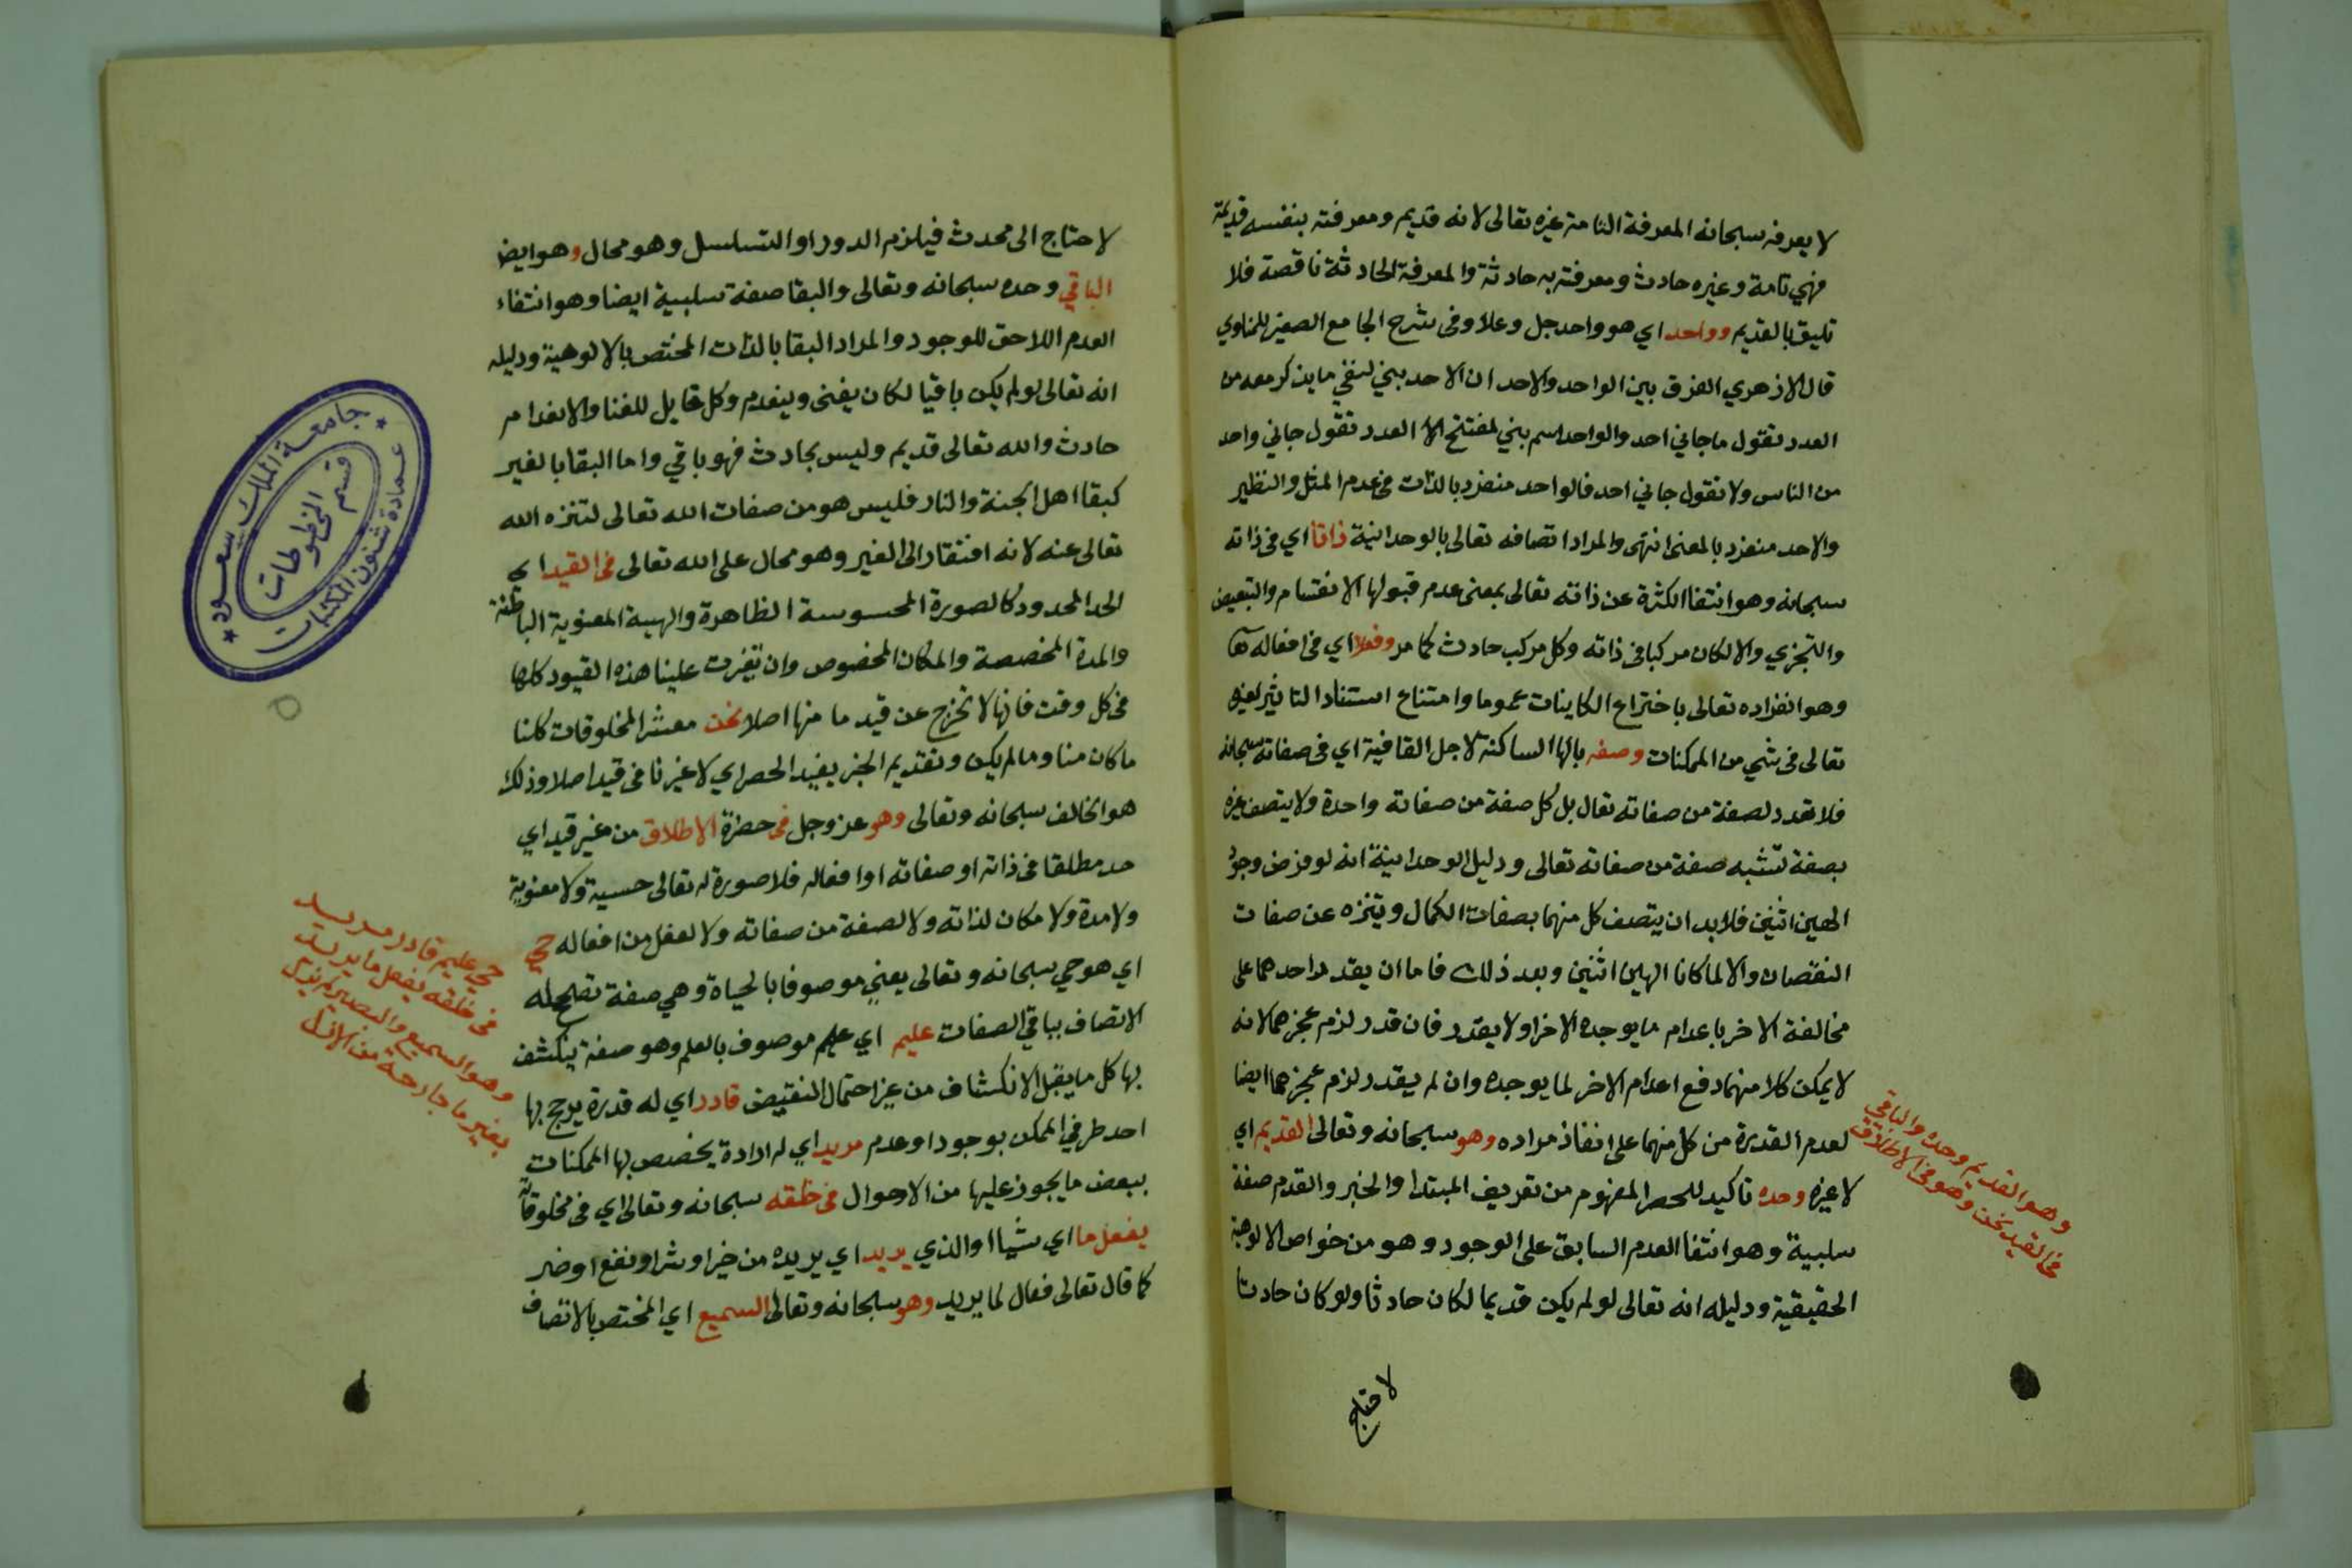 لا يعرفه سبحانه المعرفة التامة غيره تعالى لانه قديم ومعرفته بنفسه قديمة
فهي تامة وغيره حادث ومعرفته به حادثة والمعرفة الحادثة ناقصة فلا
تليق بالقديم وواحد اي هو واحد جل وعلا وفى شرح الجامع الصغير للمناوي
قال الازهري الفرق بين الواحد والاحد ان الاحد بني لنفي ما يذكر معه من
العدد تقول ما جاني احد والواحد اسم بني لمفتتح العدد تقول جاني واحد
من الناس ولا تقول جاني احد فالواحد منفرد بالذات فى عدم المثل والنظير
والاحد منفرد بالمعنى انتهى والمراد اتصافه تعالى بالوحدانية ذاتا اي فى ذاته
سبحانه وهو انتفا الكثرة عن ذاته تعالى بمعنى عدم قبولها الانقسام والتبعيض
والتجزي والا لكان مركبا فى ذاته وكل مركب حادث كما مر وفعلا اي فى افعاله
وهو انفراده تعالى باختراع الكاينات عموما وامتناع استناد التاثير لغيره
تعالى فى شي من الممكنات وصفه بالها الساكنة لاجل القافية اي فى صفاته سبحانه
فلا تعدد لصفة من صفاته تعال بل كل صفة من صفاته واحدة ولا يتصف غيره
بصفة تشبه صفة من صفاته تعالى ودليل الوحدانية انه لو فرض وجود
الهين اثنين فلا بد ان يتصف كل منهما بصفات الكمال ويتنزه عن صفات
النقصان والا لما كانا الهين اثنين وبعد ذلك فاما ان يقدر احدهما على
مخالفة الاخر باعدام ما يوجده الاخر او لا يقدر فان قدر لزم عجزهما لانه
لا يمكن كلا منهما دفع اعدام الاخر لما يوجده وان لم يقدر لزم عجزهما ايضا
لعدم القدرة من كل منهما على انفاذ مراده وهو سبحانه وتعالى القديم اي
لا غيره وحده تاكيد للحصر المفهوم من تعريف المبتدا والخبر والقدم صفة
سلبية وهو انتفا العدم السابق على الوجود وهو من خواص الالوهية
الحقيقية ودليله انه تعالى لو لم يكن قديما لكان حادثا ولو كان حادثا
وهو القديم وحده والباقي
فى القيد نحن وهو فى الاطلاق
لاحتاج
لاحتاج الى محدث فيلزم الدور او التسلسل وهو محال وهو ايضا
الباقي وحده سبحانه وتعالى والبقا صفة سلبية ايضا وهو انتفاء
العدم اللاحق للوجود والمراد البقا بالذات المختص بالالوهية ودليله
انه تعالى لو لم يكن باقيا لكان يفنى وينعدم وكل قايل للفنا والانعدام
حادث والله تعالى قديم وليس بحادث فهو باقي واما البقا بالغير
كبقا اهل الجنة والنار فليس هو من صفات الله تعالى لتنزه الله
تعالى عنه لانه افتقار الى الغير وهو محال على الله تعالى فى القيد اي
الحد المحدود كالصورة المحسوسة الظاهرة والهيية المعنوية الباطنة
والمدة المخصصة والمكان المخصوص وان تغيرت علينا هذه القيود كلها
فى كل وقت فانها لا تخرج عن قيد ما منها اصلا نحن معشر المخلوقات كلنا
ما كان منا وما لم يكن وتقديم الخبر يفيد الحصر اي لا غيرنا فى قيد اصلا وذلك
هو الخالف سبحانه وتعالى وهو عز وجل فى حضرة الاطلاق من غير قيد اي
حد مطلقا فى ذاته او صفاته او افعاله فلا صورة له تعالى حسية ولا معنوية
ولا مدة ولا مكان لذاته ولا لصفة من صفاته ولا لفعل من افعاله حي
اي هو حي سبحانه وتعالى يعني موصوفا بالحياة وهي صفة تصحح له
الاتصاف بباقي الصفات عليم اي عليم موصوف بالعلم وهو صفة ينكشف
بها كل ما يقبل الانكشاف من غير احتمال النقيض قادر اي له قدرة يرجح بها
احد طرفي الممكن بوجود او عدم مريد اي له ارادة يخصص بها الممكنات
ببعض ما يجوز عليها من الاحوال فى خلقه سبحانه وتعالى اي فى مخلوقاته
يفعل ما اي شيا او الذي يريد اي يريده من خير او شر او نفع او ضر
كما قال تعالى فعال لما يريد وهو سبحانه وتعالى السميع اي المختص بالاتصاف
حي عليم قادر مريد
فى خلقه يفعل ما يريد
وهو السميع والبصير لم يزل
بغير ما جارحة من الازل
جامعة الملك سعود
عمادة شئون المكتبات
قسم المخطوطات